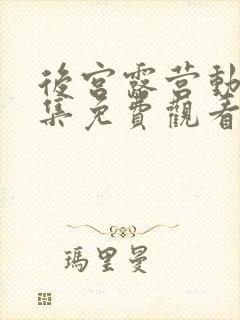 後宮露营動
集免費觀看
瑪里曼